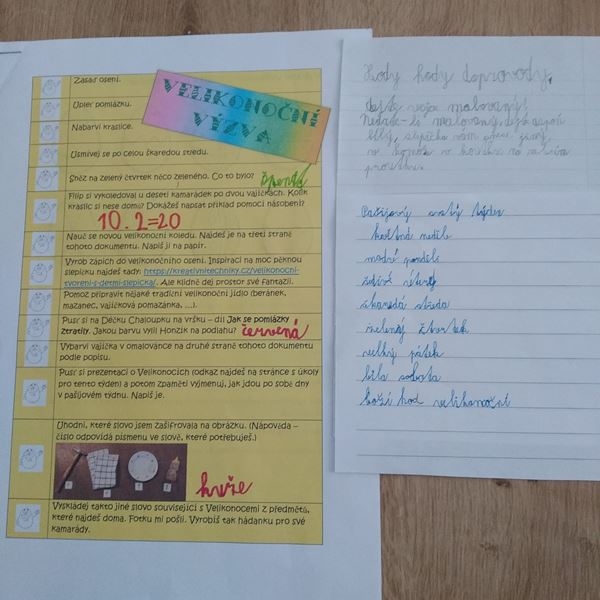 VELIKONOČNÍ
VÝZVA
Zasaď osení.
Upleť pomlázku.
Nabarvi kraslice.
Usmívej se po celou škaredou středu.
Sněz na zelený čtvrtek něco zeleného. Co to bylo? špenát
Filip si vykoledoval u deseti kamarádek po dvou vajíčkách. Kolik
kraslic si nese domů? Dokážeš napsat příklad pomocí násobení?
10.2=20
Nauč se novou velikonoční koledu. Najdeš je na třetí straně
tohoto dokumentu. Napiš ji na papír.
Vyrob zápich do velikonočního osení. Inspiraci na moc pěknou
slepičku najdeš tady: https://kreativnitechniky.cz/velikonocni-
tvoreni-s-detmi-slepicka/. Ale klidně dej prostor své fantazii.
Pomoz připravit nějaké tradiční velikonoční jídlo (beránek,
mazanec, vajíčková pomazánka, ...).
Pusť si na Déčku Chaloupku na vršku – díl Jak se pomlázky
ztratily. Jakou barvu vylil Honzík na podlahu? červená
Vybarvi vajíčka v omalovánce na druhé straně tohoto dokumentu
podle popisu.
Pusť si prezentaci o Velikonocích (odkaz najdeš na stránce s úkoly
pro tento týden) a potom zpaměti vyjmenuj, jak jdou po sobě dny
v pašijovém týdnu. Napiš je.
Uhodni, které slovo jsem zašifrovala na obrázku. (Nápověda –
číslo odpovídá písmenu ve slově, které potřebuješ.)
kuře
Vyskládej takto jiné slovo související s Velikonocemi z předmětů,
které najdeš doma. Fotku mi pošli. Vyrobíš tak hádanku pro své
kamarády.
Hody hody doprovody,
dejte vejce malovaný!
Nedáte-li malovaný, dejte aspoň
bílý, slepička vám
v koutku
Pašijový svatý týden
květná neděle
modré pondělí
žluté úterý
škaredá středa
zelený čtvrtek
velký pátek
bílá sobota
boží hod velikonoční